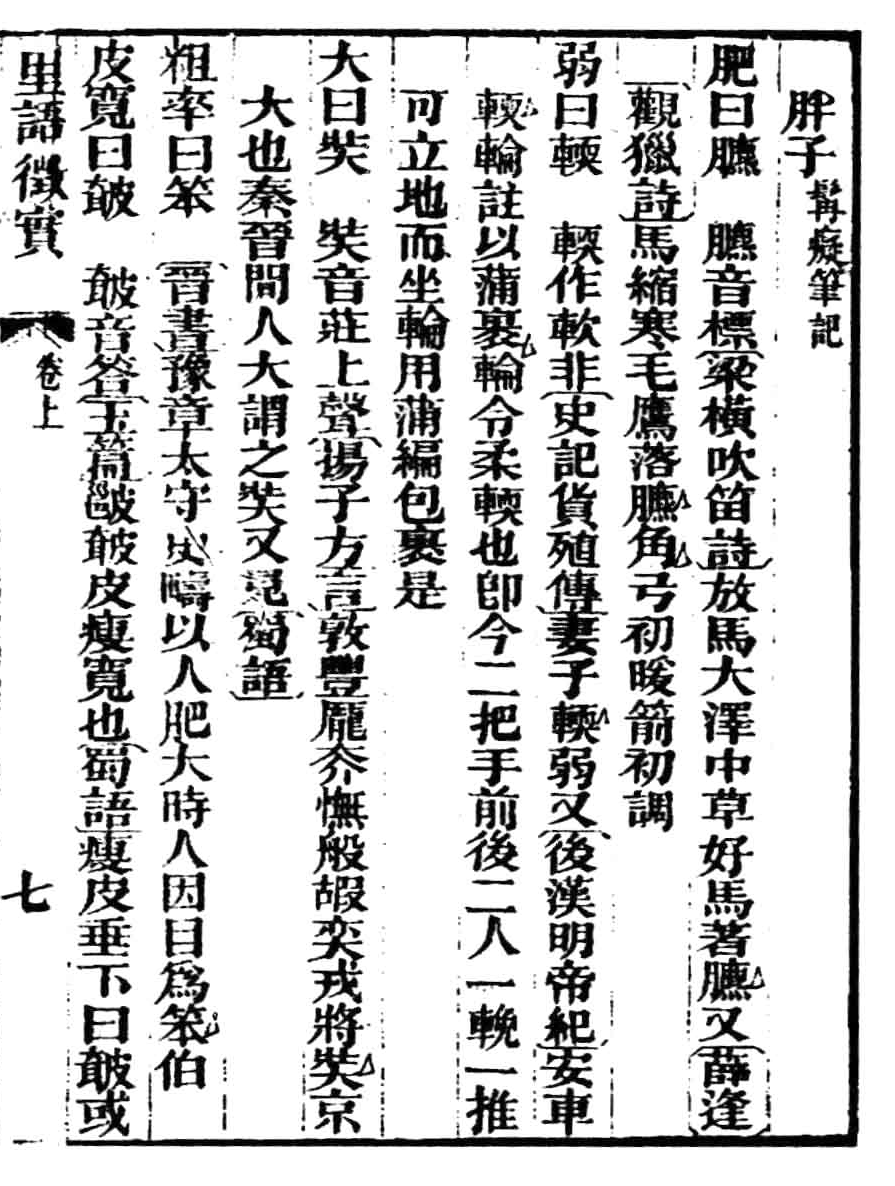 胖子髯癡筆記
肥曰臕　臕音標梁橫吹笛詩放馬大澤中草好馬著臕又薛逢
觀獵詩馬縮寒毛鷹落臕角弓初暖箭初調
弱曰輭　輭作軟非史記貨殖傳妻子輭弱又後漢明帝紀安車
輭輪註以蒲裹輪令柔輭也卽今二把手前後二人一輓一推
可立地而坐輪用蒲編包裹是
大曰奘　奘音莊上聲揚子方言敦豐厖夰憮般嘏奕戎將奘京
大也秦晉間人大謂之奘又見蜀語
粗率曰笨　晉書豫章太守史疇以人肥大時人因目爲笨伯
皮寬曰皵　皵音答玉篇皵皮瘦寬也蜀語瘦皮垂下曰皵或
里語徵實　卷上　七